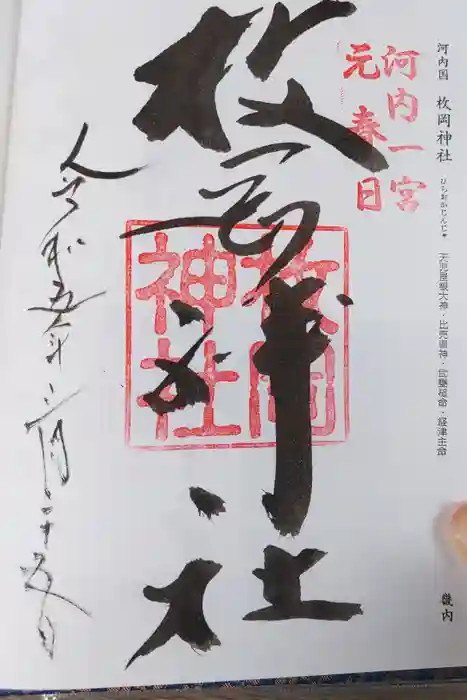 河内国 枚岡神社 ひらおかじんじゃ 天児屋根大神・比売御神・武甕槌命・経津主命
畿内
河内一宮
元春日
枚岡神社
枚岡
神社
令和五年二月二十五日